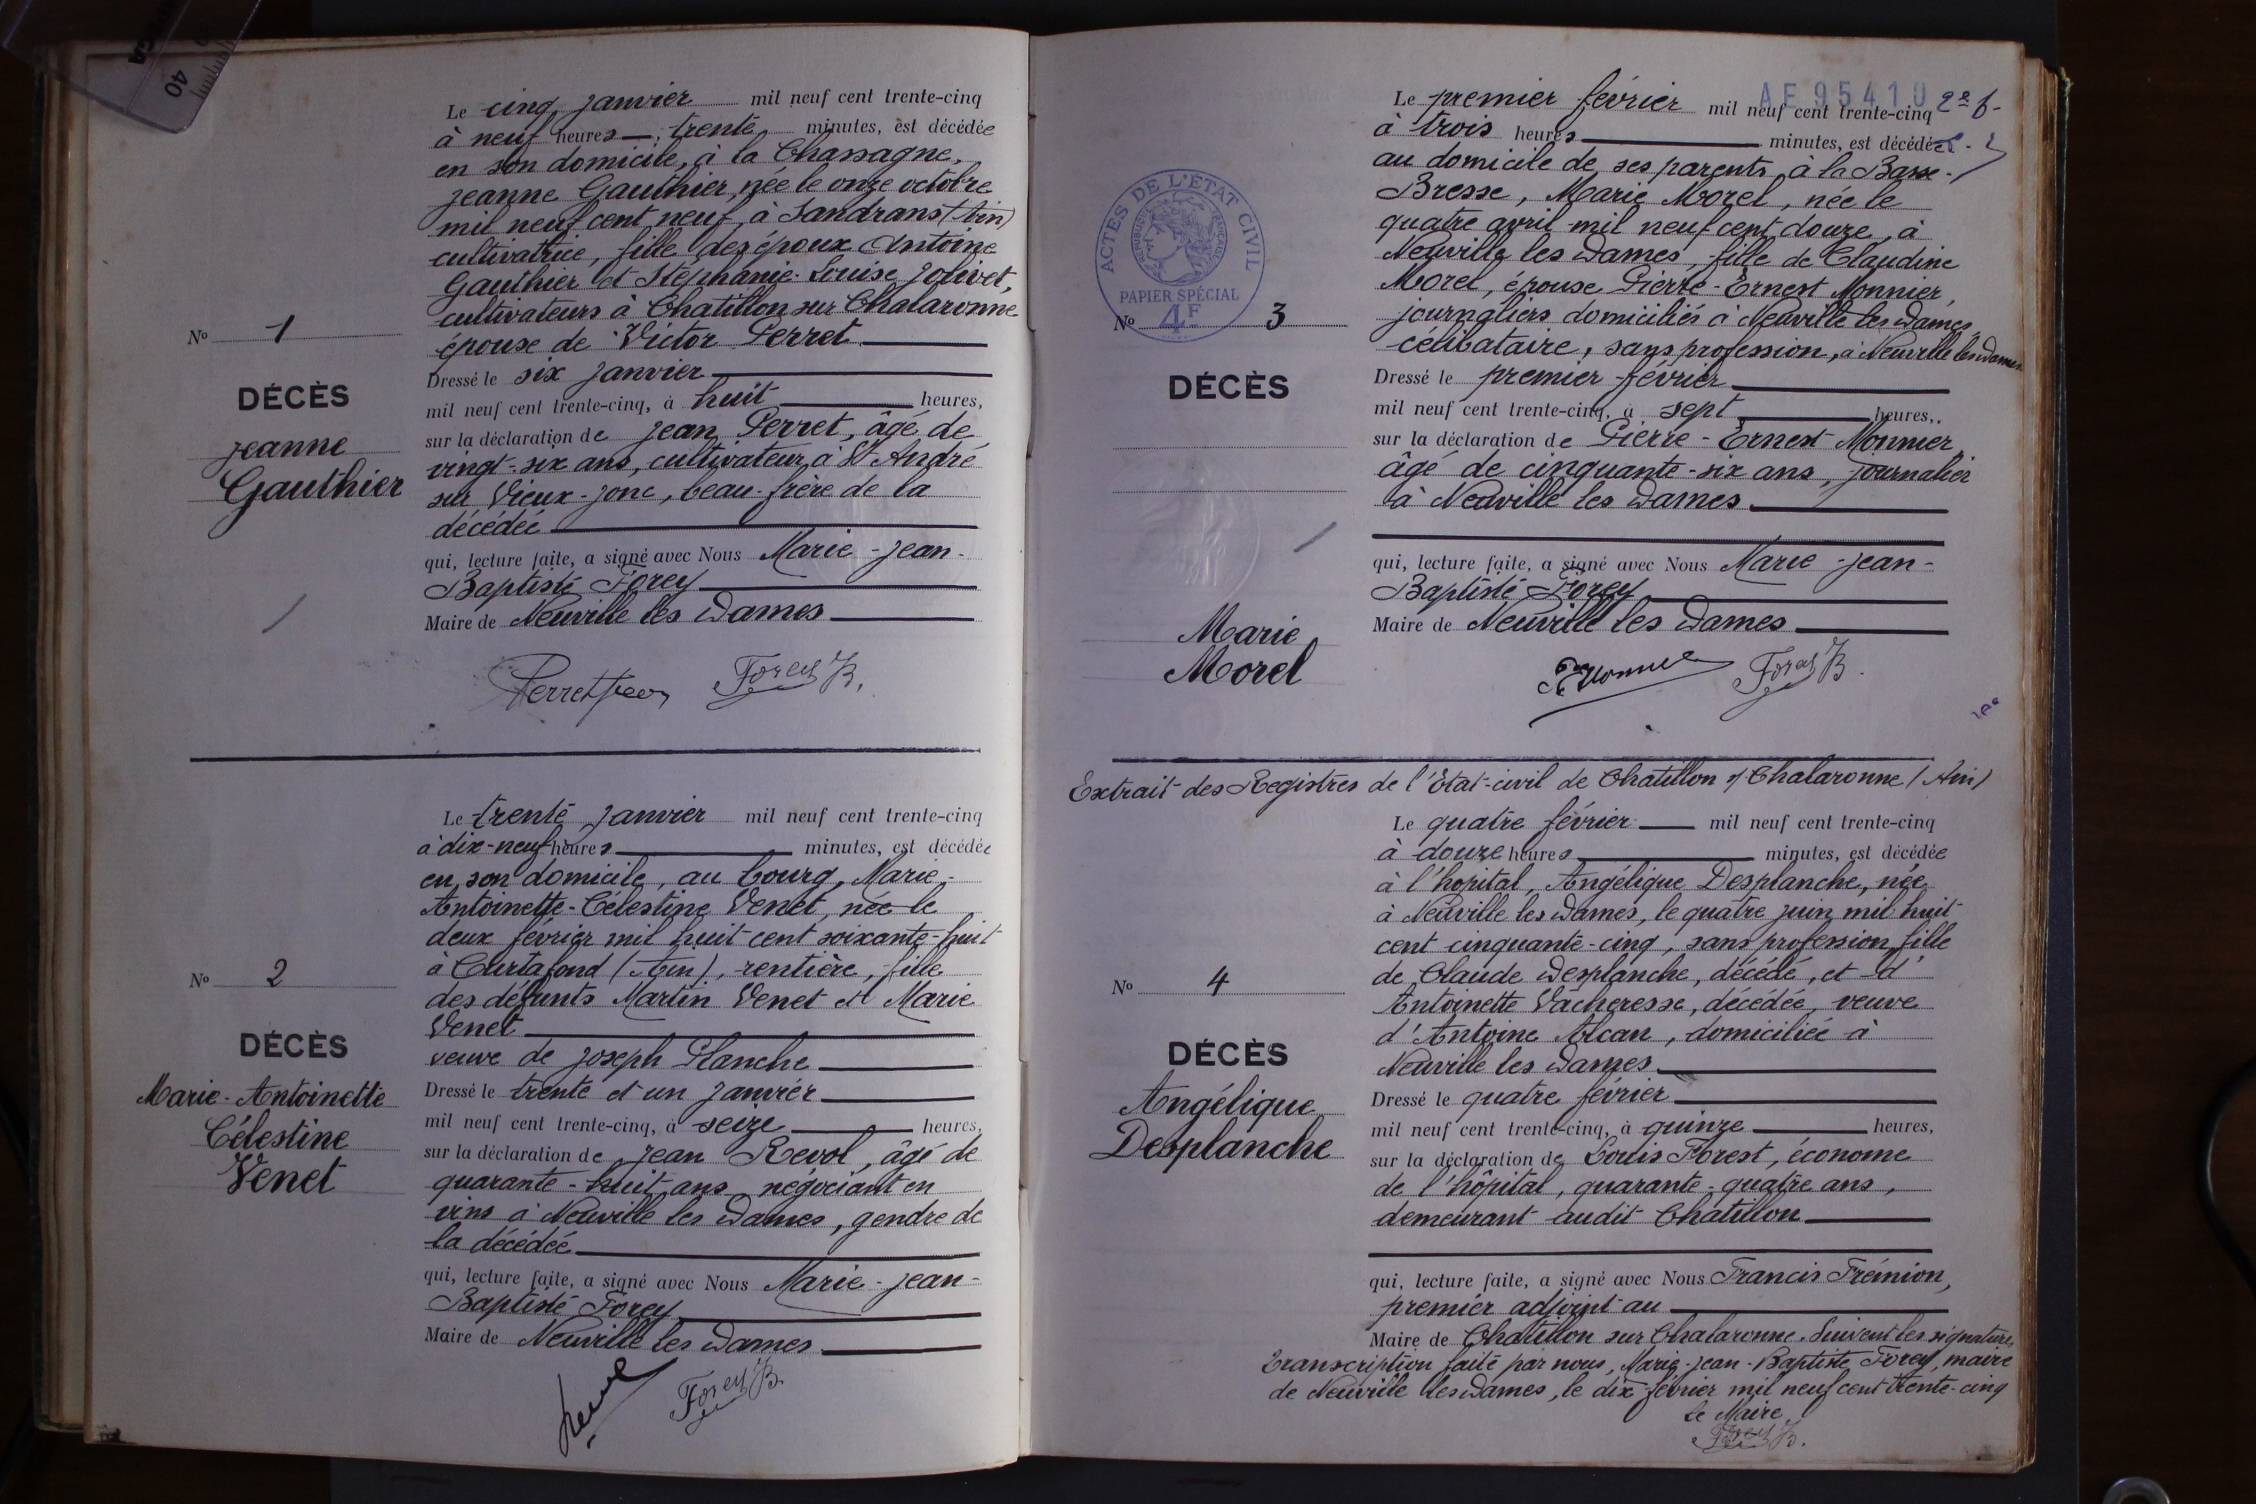 40
Le cinq janvier mil neuf cent trente-cinq
à neuf heures, trente minutes, est décédée
en son domicile, à la Chassagne,
Jeanne Gauthier, née le onze octobre
mil neuf cent neuf, à Sandrans (Ain)
cultivatrice, fille des époux Antoine
Gauthier et Stéphanie-Louise Jolivet,
cultivateurs à Chatillon sur Chalaronne
No 1
épouse de Victor Perret
DÉCÈS
Jeanne
Gauthier
Dressé le six janvier
mil neuf cent trente-cinq, à huit heures,
sur la déclaration de Jean Perret, âgé de
vingt-six ans, cultivateur à St André
sur Vieux-Jonc, beau-frère de la
décédée
qui, lecture faite, a signé avec Nous Marie-Jean-
Baptiste Forey
Maire de Neuville les Dames
Perret Jean Forey B.
Le trente janvier mil neuf cent trente-cinq
à dix-neuf heures minutes, est décédée
en son domicile, au bourg, Marie-
Antoinette-Célestine Venet, née le
deux février mil huit-cent soixante-huit
à Curtafond (Ain), rentière, fille
No 2
des défunts Martin Venet et Marie
Venet
veuve de Joseph Planche
DÉCÈS
Marie-Antoinette
Célestine
Venet
Dressé le trente et un janvier
mil neuf cent trente-cinq, à seize heures,
sur la déclaration de Jean Revol, âgé de
quarante-huit ans, négociant en
vins à Neuville les Dames, gendre de
la décédée
qui, lecture faite, a signé avec Nous Marie-Jean-
Baptiste Forey
Maire de Neuville les Dames
Forey B.
AF 95410
Le premier février mil neuf cent trente-cinq
à trois heures minutes, est décédée
au domicile de ses parents, à la Basse-
Bresse, Marie Morel, née le
quatre avril mil neuf cent douze, à
Neuville les Dames, fille de Claudine
Morel, épouse Pierre-Ernest Monnier,
journaliers domiciliés à Neuville les Dames,
célibataire, sans profession, à Neuville les Dames
ACTES DE L'ÉTAT CIVIL
RÉPUBLIQUE FRANÇAISE
PAPIER SPÉCIAL
4F
No 3
DÉCÈS
Marie
Morel
Dressé le premier février
mil neuf cent trente-cinq, à sept heures,
sur la déclaration de Pierre-Ernest Monnier,
âgé de cinquante-six ans, journalier
à Neuville les Dames
qui, lecture faite, a signé avec Nous Marie-Jean-
Baptiste Forey
Maire de Neuville les Dames
Forey B.
Extrait des Registres de l'Etat-civil de Chatillon s/ Chalaronne (Ain)
Le quatre février mil neuf cent trente-cinq
à douze heures minutes, est décédée
à l'hopital, Angélique Desplanche, née
à Neuville les Dames, le quatre juin mil huit-
cent cinquante-cinq, sans profession, fille
de Claude Desplanche, décédé, et d'
Antoinette Vacheresse, décédée, veuve
d'Antoine Alcan, domiciliée à
Neuville les Dames
No 4
DÉCÈS
Angélique
Desplanche
Dressé le quatre février
mil neuf cent trente-cinq, à quinze heures,
sur la déclaration de Louis Forest, économe
de l'hôpital, quarante-quatre ans,
demeurant audit Chatillon
qui, lecture faite, a signé avec Nous Francis Frémion,
premier adjoint au
Maire de Chatillon sur Chalaronne. Suivent les signatures
Transcription faite par nous, Marie-Jean-Baptiste Forey, maire
de Neuville les Dames, le dix février mil neuf cent trente-cinq
le Maire,
Forey B.